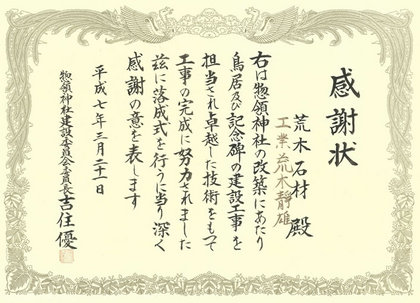 感謝状
荒木石材
工業荒木靜雄
殿
右は惣領神社の改築にあたり
鳥居及び記念碑の建設工事を
担当され卓越した技術をもって
工事の完成に努力されました
茲に落成式を行うに当り深く
感謝の意を表します
平成七年三月二十一日
惣領神社建設委員会委員長吉住優